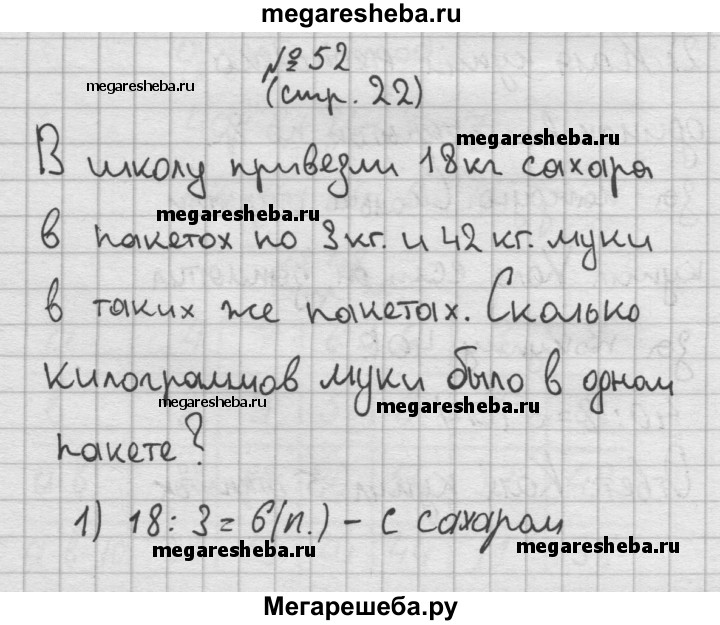 megaresheba.ru
№ 52
megaresheba.ru
(стр. 22)
megaresheba.ru
В школу привезли 18 кг сахара
megaresheba.ru
в пакетох по 3 кг. и 42 кг. муки
в таких же пакетах. Сколько
килограммов муки было в одном
megaresheba.ru
megaresheba.ru
пакете?
1) 18 : 3 = 6 (п.) – с сахаром
megaresheba.ru
megaresheba.ru
Мегарешеба.ру